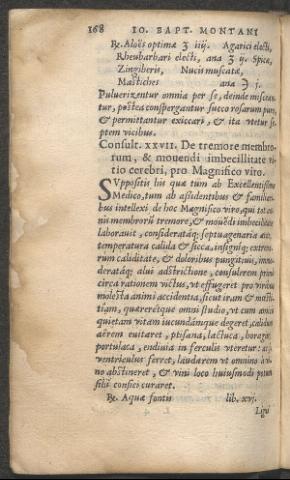 168 IO. BAPT. MONTANI
℞. Aloës optimæ ʒ iiij. Agarici electi,
Rheubarbari electi, ana ʒ ij. Spicæ,
Zingiberis, Nucis muscatæ,
Mastiches ana ℈ j.
Puluerizentur omnia per se, deinde miscean
tur, pòst eà conspergantur succo rosarum pur.
& permittantur exiccari, & ita vtetur se
ptem vicibus.
Consult. XXVII. De tremore membro-
rum, & mouendi imbecillitate vi-
tio cerebri, pro Magnifico viro.
SVppositis his quæ tum ab Excellentissimo
Medico, tum ab assidentibus & familiari
bus intellexi de hoc Magnifico viro, qui tot an
nis membrorū tremore, & mouēdi imbecillitate
laborauit, consideratáq; septuagenaria æta.
temperatura calida & sicca, insigniq; extremo
rum caliditate, & doloribus pungitiuis,
deratáq; alui adstrictione, consulerem primò
circa rationem victus, vt effugeret pro viribus
molesta animi accidentia, sicut iram & mœsti
tiam, quæreretque omni studio, vt cum amicis
quietam vitam iucundámque degeret, calidum
aërem euitaret, ptisana, lactuca, boragine
portulaca, endiuia in ferculis vteretur: si
ventriculus ferret, laudarem vt omnino à vi-
no abstineret, & vini loco huiusmodi potum
sibi confici curaret.
℞. Aquæ fontis lib. xvj.
Ligni